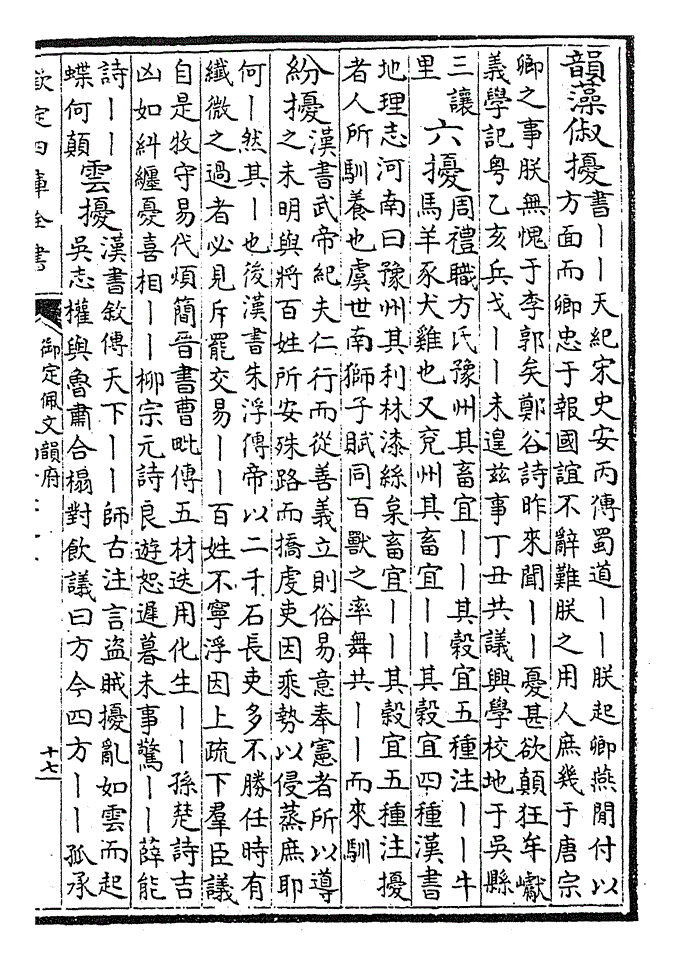 韻藻俶擾書丨丨天紀宋史安丙傳蜀道丨丨朕起卿燕閒付以
方面而卿忠于報國誼不辭難朕之用人庶幾于唐宗
卿之事朕無愧于李郭矣鄭谷詩昨來聞丨丨憂甚欲顛狂牟巘
義學記粤乙亥兵戈丨丨未遑兹事丁丑共議興學校地于吳縣
三讓
里
六擾周禮職方氏豫州其畜宜丨丨其穀宜五種注丨丨牛
馬羊豕犬雞也又兖州其畜宜丨丨其穀宜四種漢書
地理志河南曰豫州其利林漆絲枲畜宜丨丨其穀宜五種注擾
者人所馴養也虞世南獅子賦同百獸之率舞共丨丨而來馴
紛擾漢書武帝紀夫仁行而從善義立則俗易意奉憲者所以導
之未明與將百姓所安殊路而撟虔吏因乘勢以侵蒸庶耶
何丨然其丨也後漢書朱浮傳帝以二千石長吏多不勝任時有
纖微之過者必見斥罷交易丨丨百姓不寧浮因上疏下羣臣議
自是牧守易代煩簡晉書曹毗傳五材迭用化生丨丨孫楚詩吉
凶如糾纏憂喜相丨丨柳宗元詩良遊恕遲暮未事驚丨丨薛能
詩丨丨
蝶何顛
雲擾漢書敘傳天下丨丨師古注言盜賊擾亂如雲而起
吳志權與魯肅合榻對飲議曰方今四方丨丨孤承
欽定四庫全書
御定佩文韻府
十七